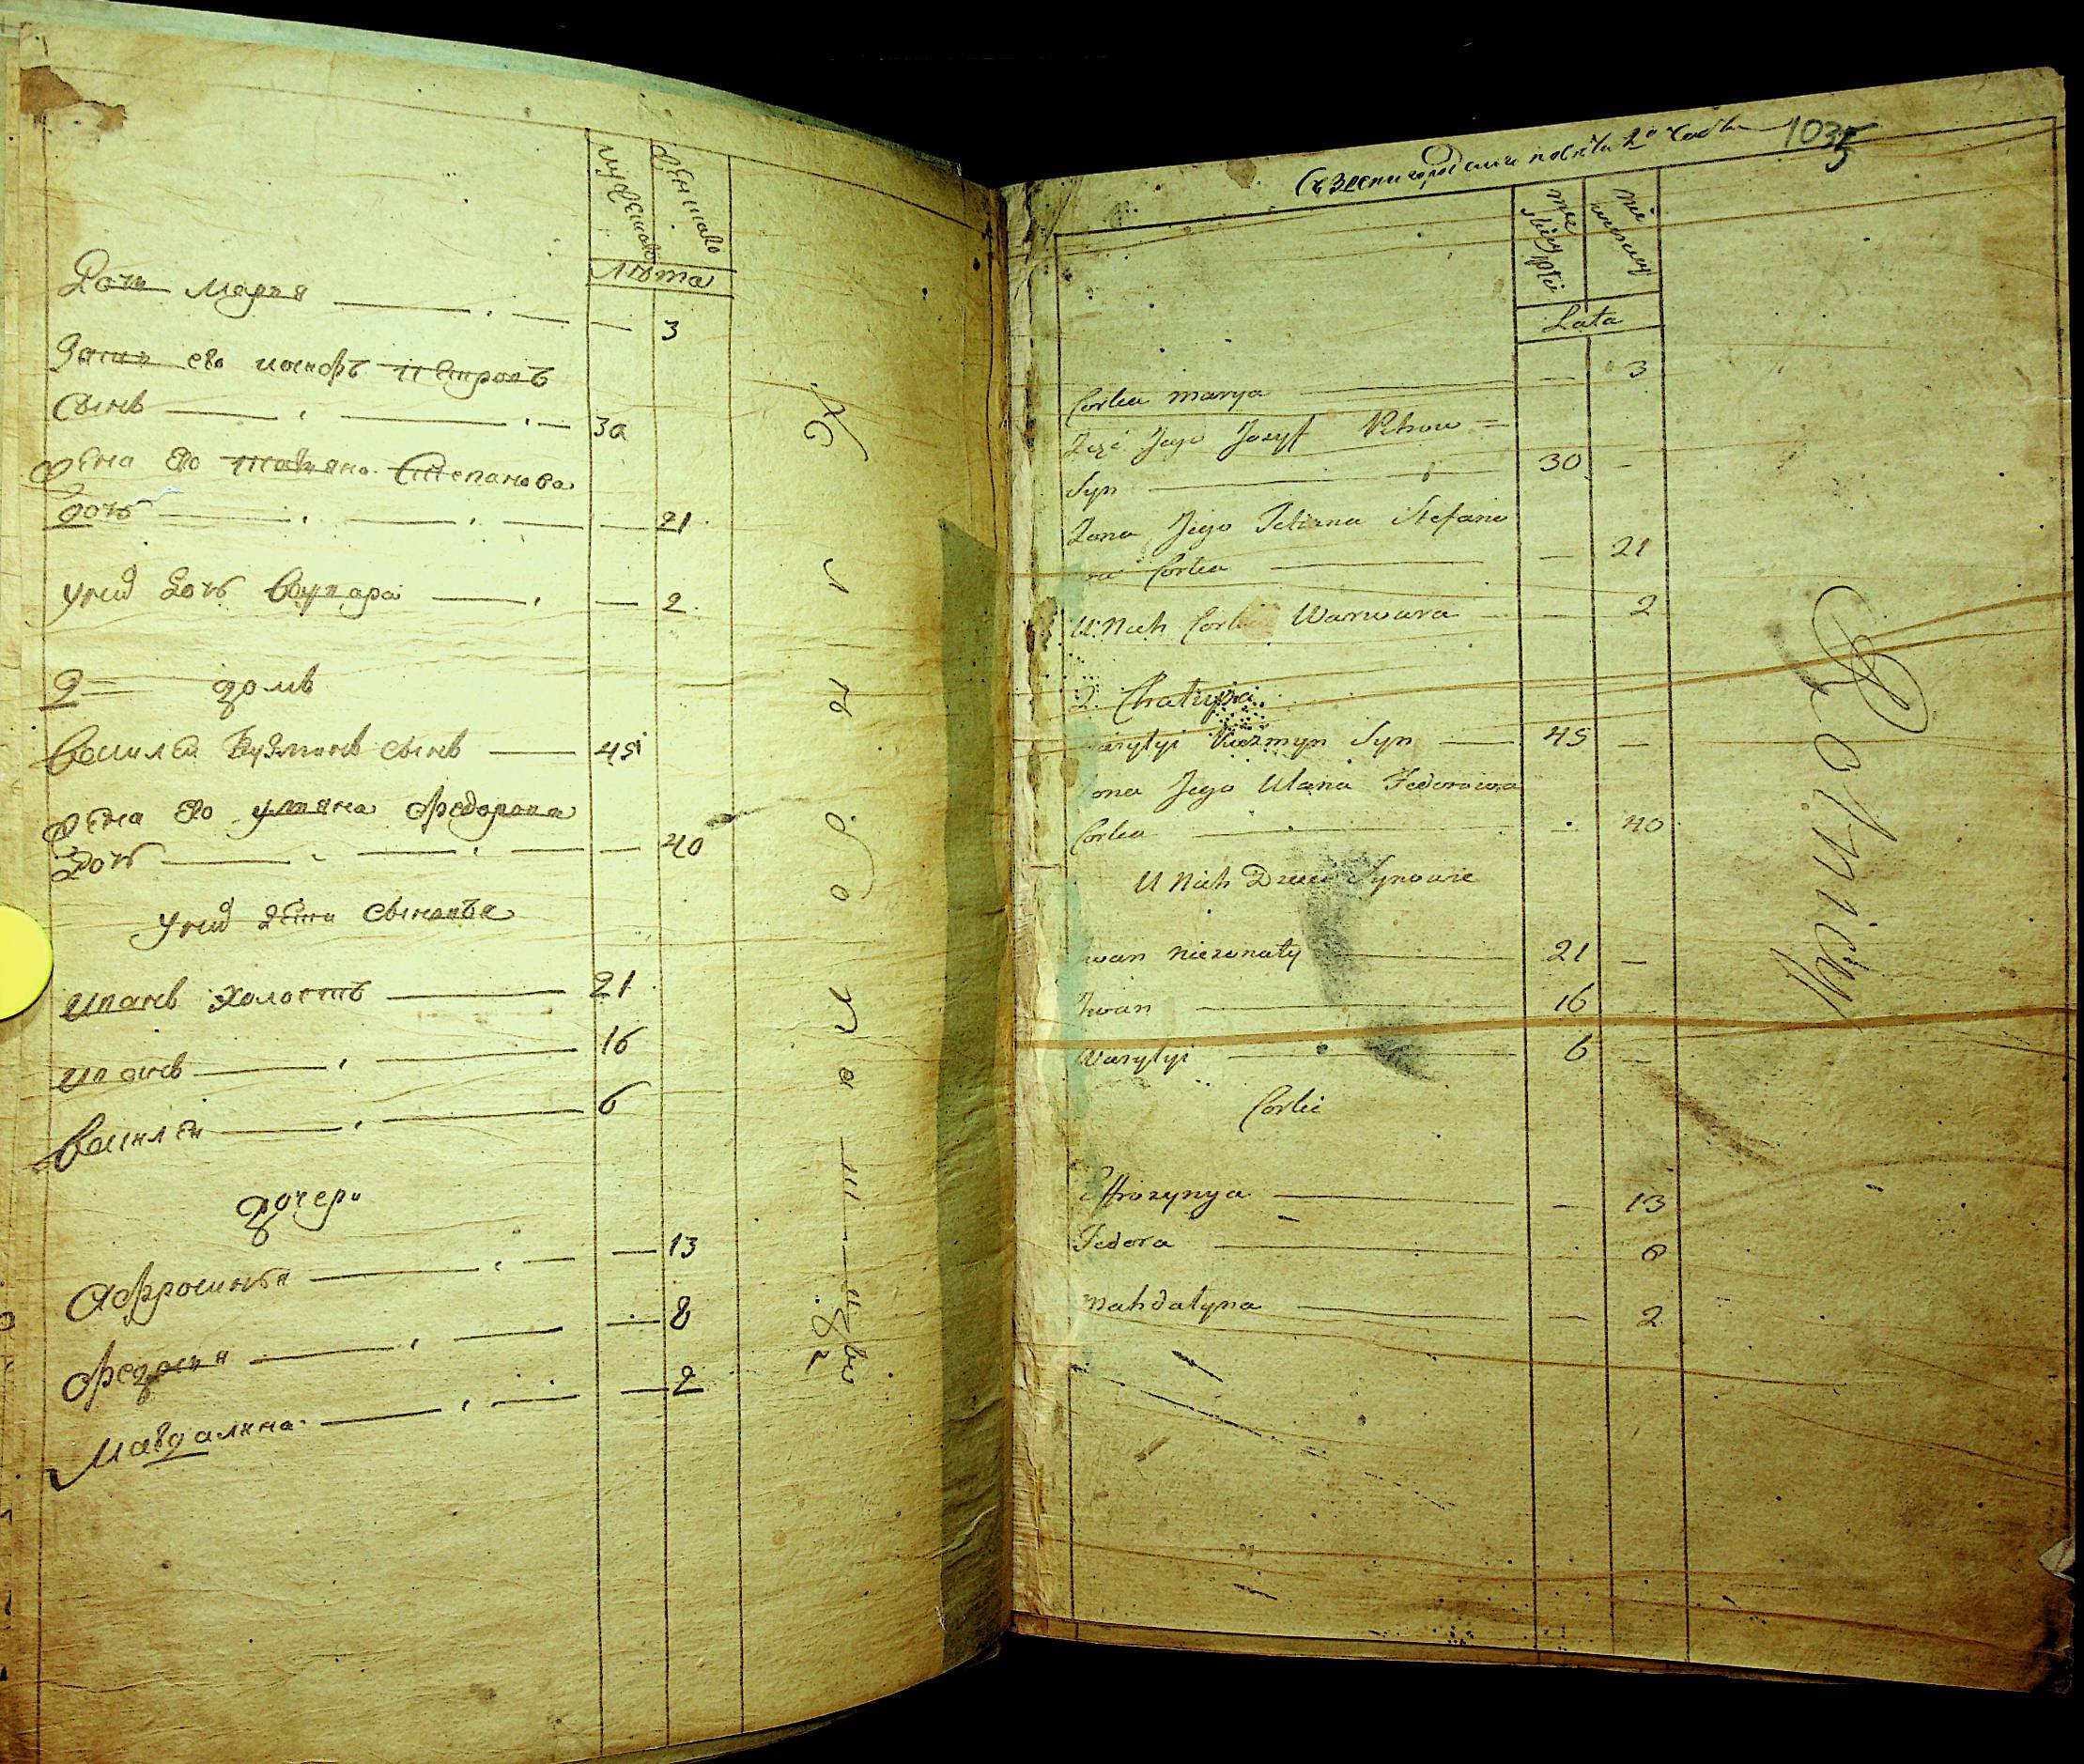 мужеска
женска
лѣта
Дочь Мария 3
Зять его иосифъ петровъ
Сынъ 30
жена его татяна Степанова
дочь 21
унид дочь Варвара 2
2 домъ
Василей Кузминъ сынъ 45
жена его уляна Федорова
Дочь 40
унид дети сыновье
иванъ холостъ 21
иванъ 16
Василей 6
дочери
Афросинья 13
Федосия 8
Магдалина 2
1035
Lata
Corka marya 3
Zięć Jego Jozyf Petrow
Syn 30
Zona Jego Tetiana Stefano
wa Corka 21
U Nich Corka Warwara 2
2. Chatupa
Wasylyi Kuzmyn Syn 45
Zona Jego Ulana Fedorowa
Corka 40
U Nich Dzieci Synowie
Iwan niezonaty 21
Iwan 16
Wasylyi 6
Corki
Effrozynya 13
Fedora 8
Mahdalyna 2
Rolnicy